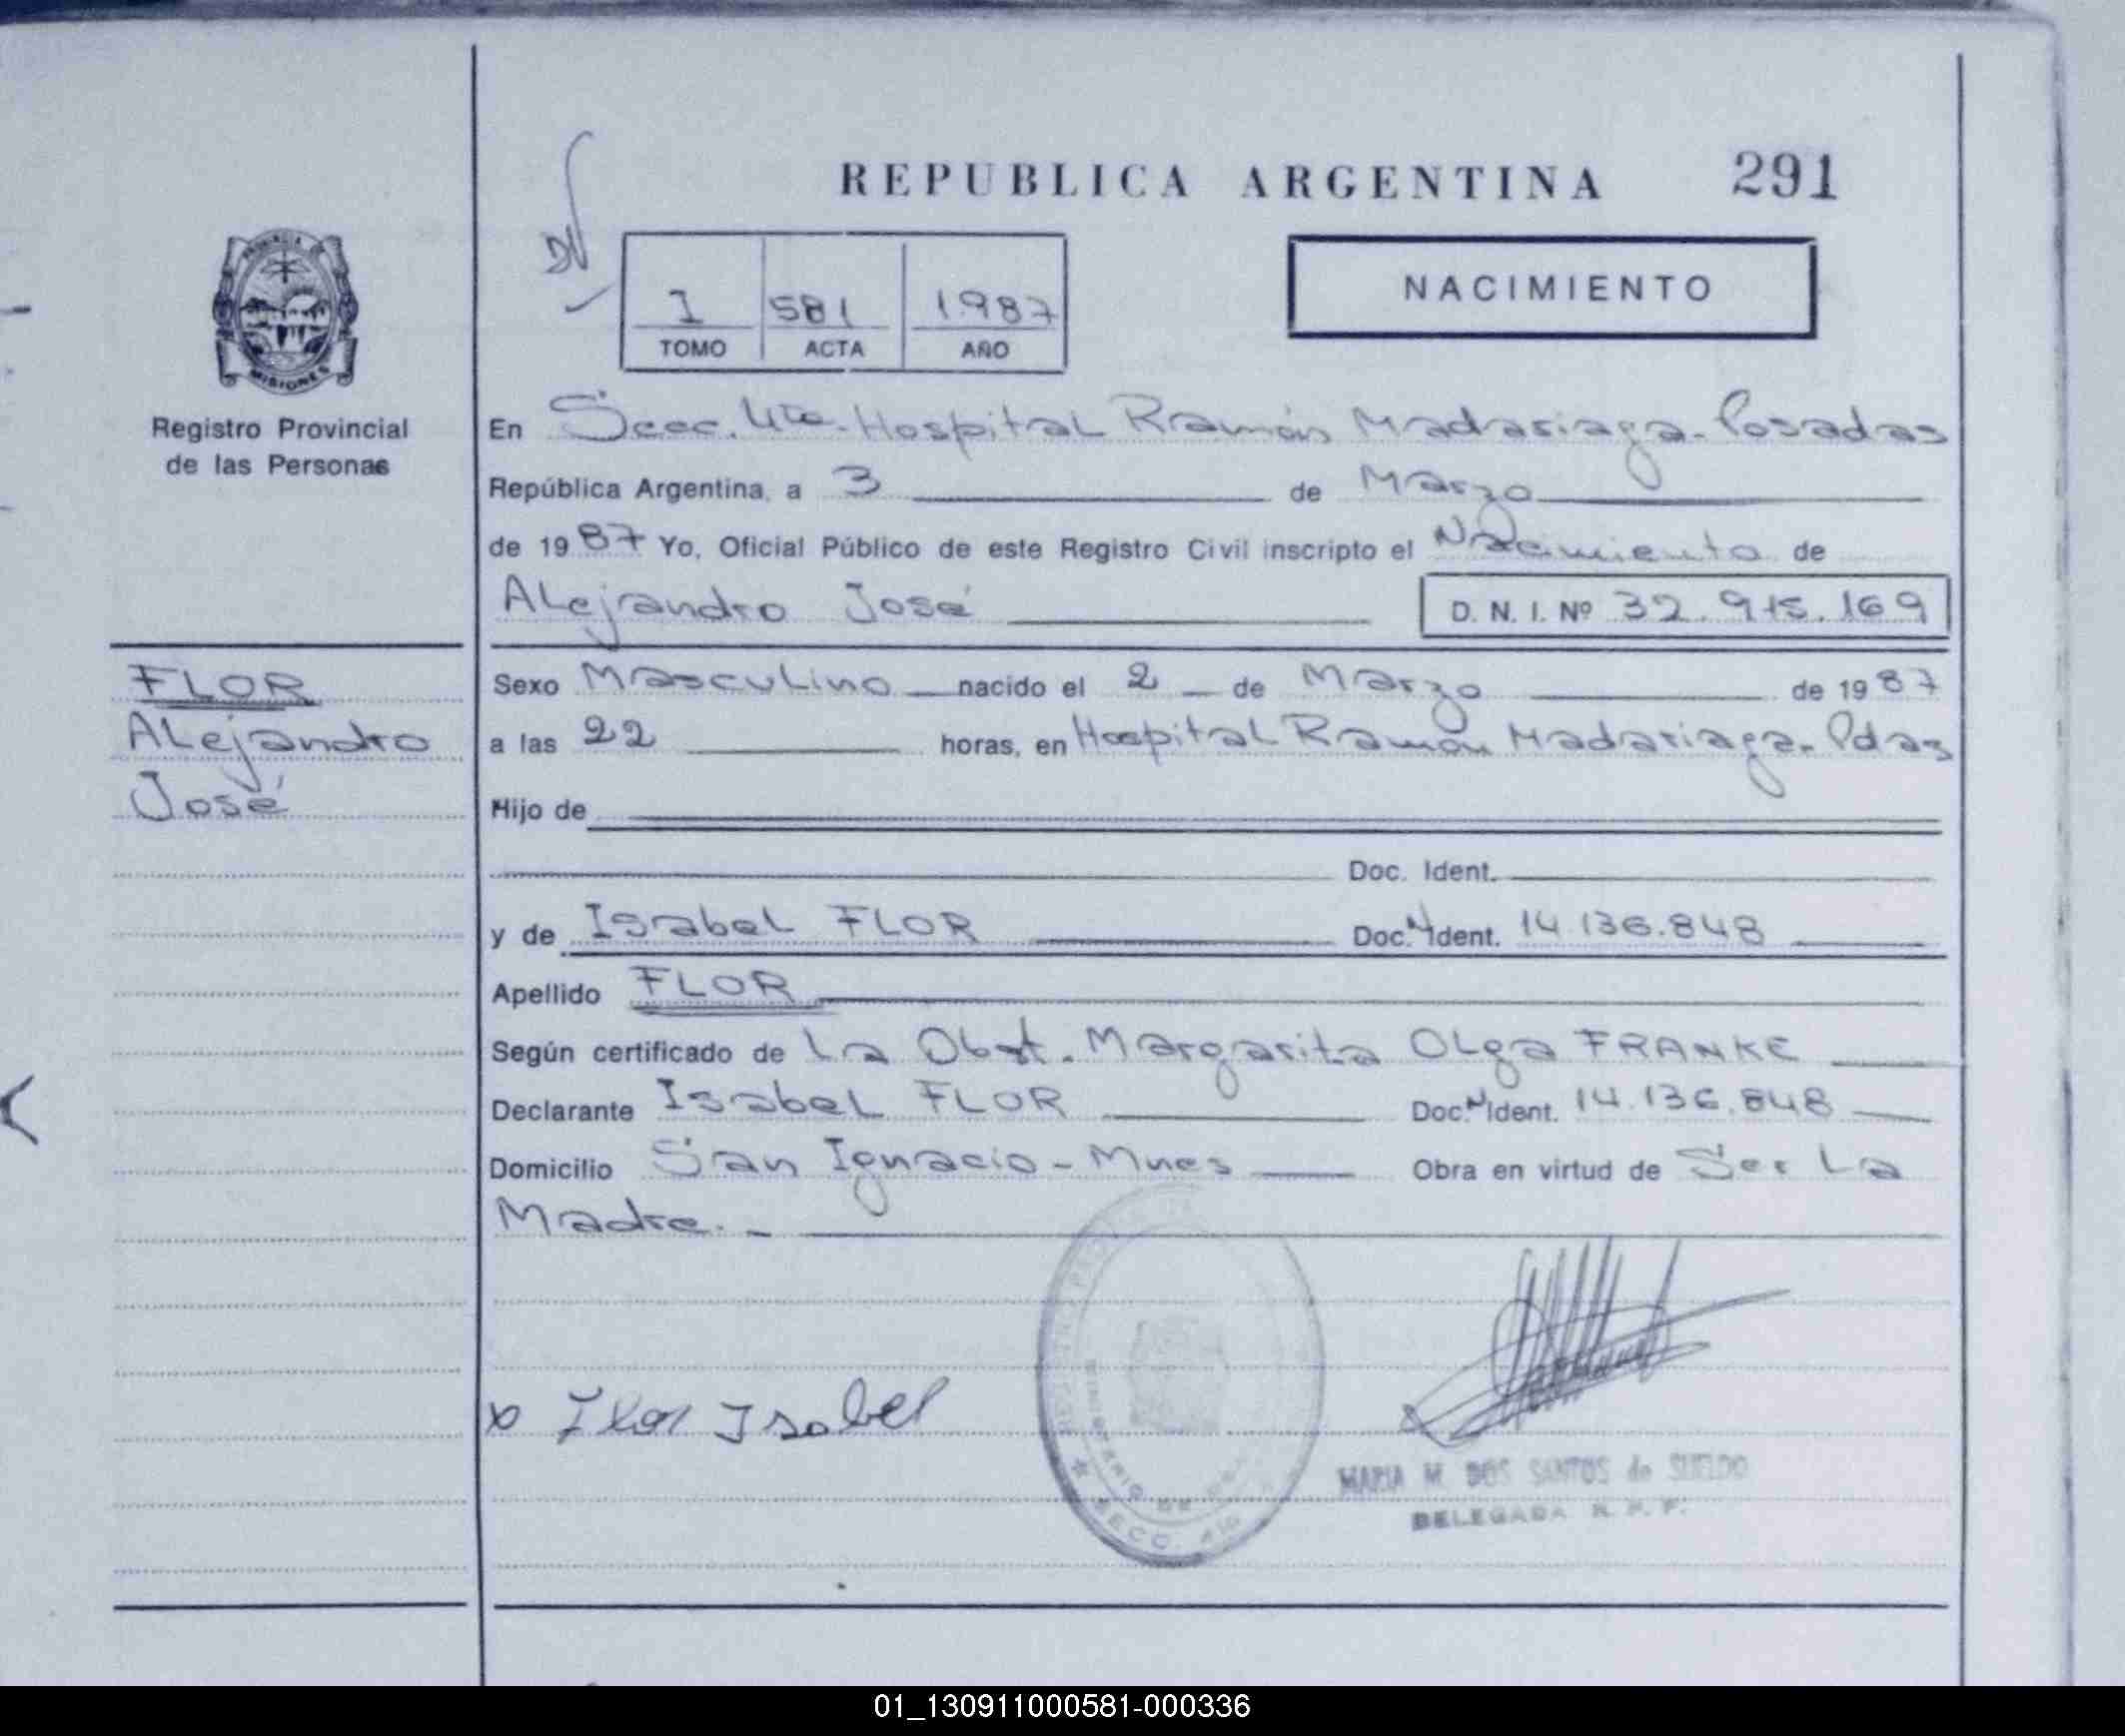 REPUBLICA ARGENTINA 291
NACIMIENTO
I 581 1.987
TOMO ACTA AÑO
MISIONES
Registro Provincial
de las Personas
En Secc. 4ta. Hospital Ramón Madariaga. Posadas
República Argentina, a 3 de Marzo
de 19 87 Yo, Oficial Público de este Registro Civil inscripto el Nacimiento de
Alejandro José D. N. I. Nº 32.915.169
FLOR
Alejandro
José
Sexo Masculino nacido el 2 de Marzo de 19 87
a las 22 horas, en Hospital Ramón Madariaga. Pdas
Hijo de
Doc. Ident.
y de Isabel FLOR Doc. N Ident. 14 136.848
Apellido FLOR
Según certificado de La Obst. Margarita Olga FRANKE
Declarante Isabel FLOR Doc. N Ident. 14.136.848
Domicilio San Ignacio - Mnes Obra en virtud de Ser La
Madre. -
x Flor Isabel
MARIA M. DOS SANTOS de SUELDO
DELEGADA R. P. P.
SECC. 4ta
01_130911000581-000336